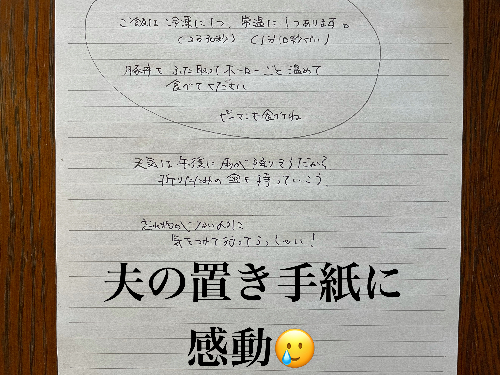 ご飯は冷凍に1つ、常温に1つあります。
(2分30秒) (1分10秒くらい)
豚丼もふた取ってホーローごと温めて
食べてください
ピーマンも食べてね
天気は午後に雨が降りそうだから
折りたたみの傘を持っていこう。
忘れ物がないように
気をつけて行ってらっしゃい!
夫の置き手紙に
感動🥲